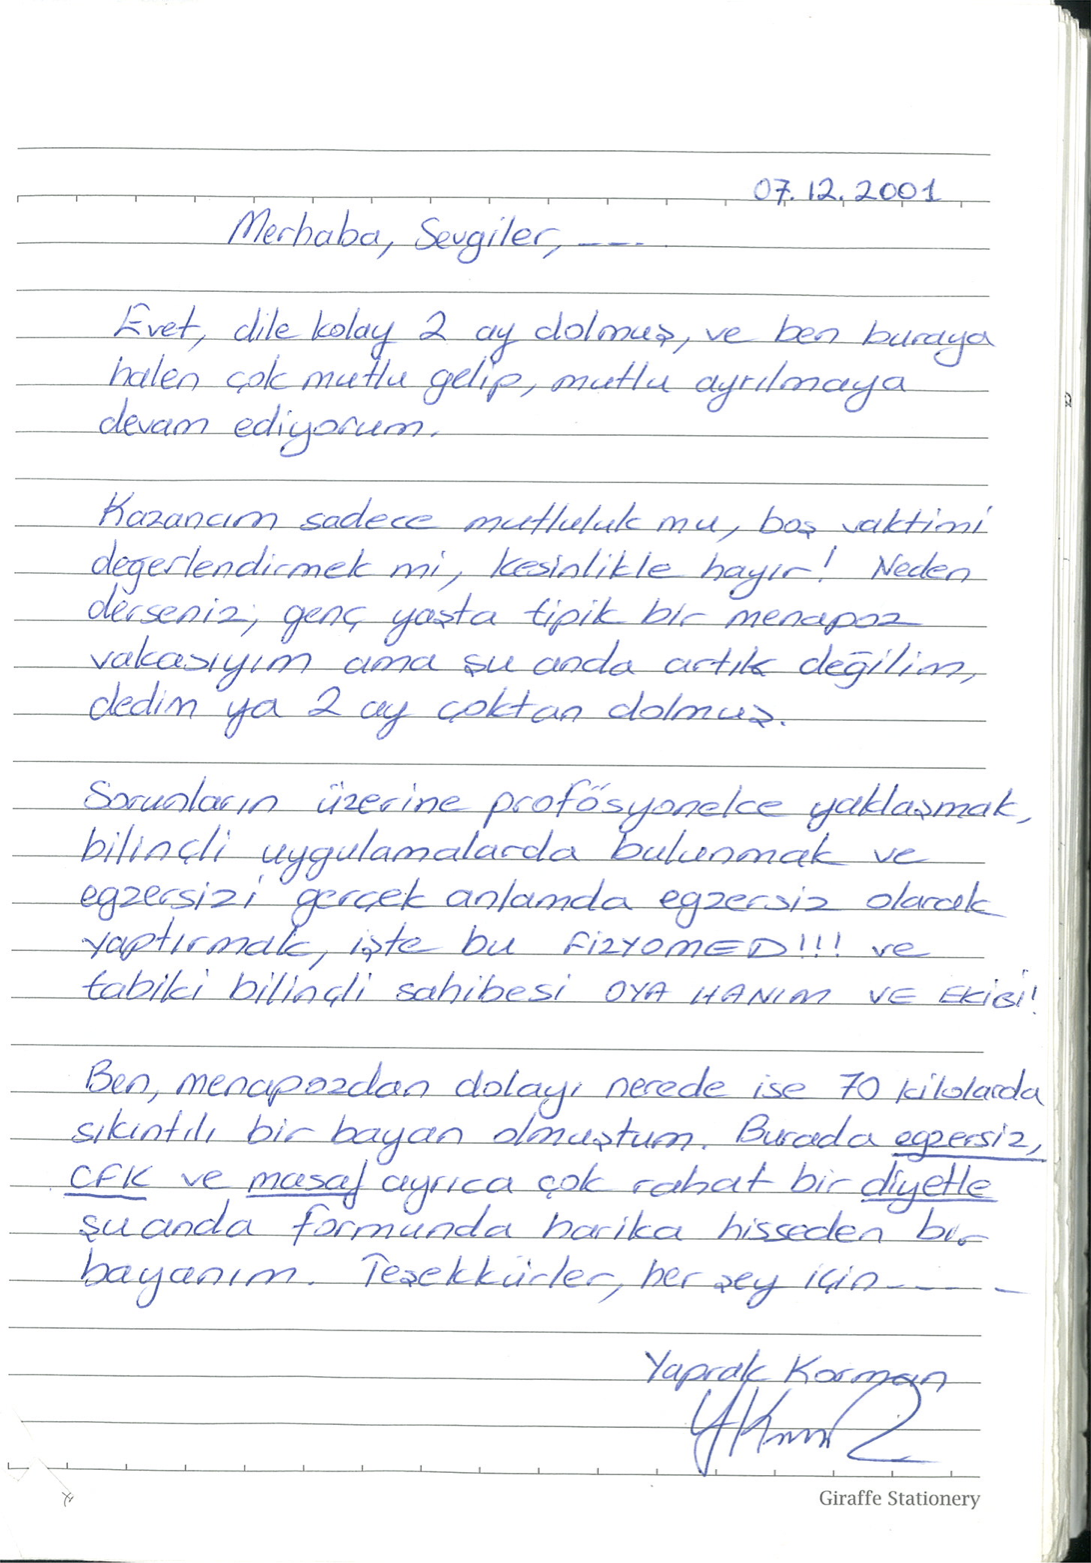 07.12.2001
Merhaba, Sevgiler, ----
Evet, dile kolay 2 ay dolmuş, ve ben buraya
halen çok mutlu gelip, mutlu ayrılmaya
devam ediyorum.
Kazancım sadece mutluluk mu, boş vaktimi
değerlendirmek mi, kesinlikle hayır! Neden
derseniz, genç yaşta tipik bir menapoz
vakasıyım ama şu anda artık değilim,
dedim ya 2 ay çoktan dolmuş.
Sorunların üzerine profösyonelce yaklaşmak,
bilinçli uygulamalarda bulunmak ve
egzersizi gerçek anlamda egzersiz olarak
yaptırmak, işte bu FİZYOMED!!! ve
tabiki bilinçli sahibesi OYA HANIM VE EKİBİ!
Ben, menapozdan dolayı nerede ise 70 kilolarda
sıkıntılı bir bayan olmuştum. Burada egzersiz,
CFK ve masaj ayrıca çok rahat bir diyetle
şu anda formunda harika hisseden bir
bayanım. Teşekkürler, her şey için ----
Yaprak Korman
Giraffe Stationery